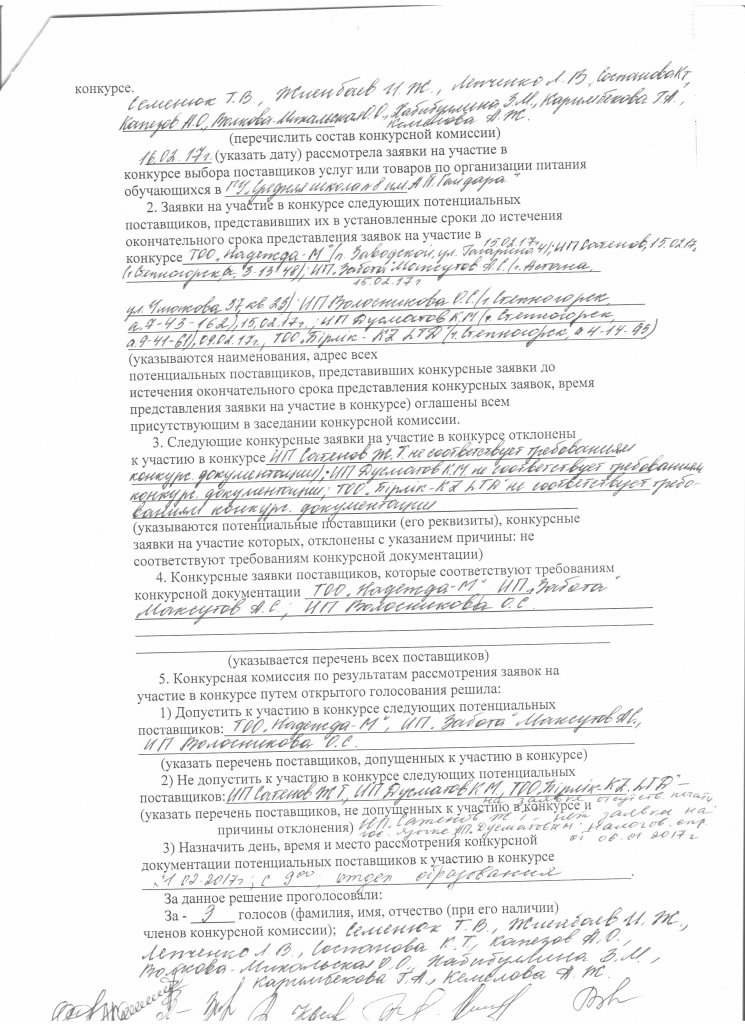 конкурсе.
Семенюк Т.В., Жиенбаев И.Ж., Лепченко Л.В, Соспанова К.Т,
Капезов А.О., Волкова-Микальская О.О., Хабибуллина З.М., Карымбекова Г.А.,
Кемелова А.Ж.
(перечислить состав конкурсной комиссии)
16.02.17г. (указать дату) рассмотрела заявки на участие в
конкурсе выбора поставщиков услуг или товаров по организации питания
обучающихся в ГУ „Средняя школа №8 им. А.П. Гайдара"
2. Заявки на участие в конкурсе следующих потенциальных
поставщиков, представивших их в установленные сроки до истечения
окончательного срока представления заявок на участие в
15.02.17г
конкурсе ТОО „Надежда-М" (п. Заводской, ул. Гагарина 4); ИП Сатенов, 15.02.17г
(г.Степногорск, 3-13-48); ИП „Забота" Максутов А.С. (г. Астана,
15.02.17г
37, кв 23); ИП Волосникова О.С. (г. Степногорск,
а. 7-43-162), 15.02.17г.; ИП Дусматов К.М (г. Степногорск,
а. 9-41-61), 09.02.17г., ТОО „Бірлік-KZ LTD" (г. Степногорск, а 4-14-95)
(указываются наименования, адрес всех
потенциальных поставщиков, представивших конкурсные заявки до
истечения окончательного срока представления конкурсных заявок, время
представления заявки на участие в конкурсе) оглашены всем
присутствующим в заседании конкурсной комиссии.
3. Следующие конкурсные заявки на участие в конкурсе отклонены
к участию в конкурсе ИП Сатенов Ж.Т. не соответствует требованиям
конкурс. документации); ИП Дусматов К.М не соответствует требованиям
конкурс. документации; ТОО „Бірлік-KZ LTD" не соответствует требо-
ваниям конкурс. документации
(указываются потенциальные поставщики (его реквизиты), конкурсные
заявки на участие которых, отклонены с указанием причины: не
соответствуют требованиям конкурсной документации)
4. Конкурсные заявки поставщиков, которые соответствуют требованиям
конкурсной документации ТОО „Надежда-М", ИП „Забота"
Максутов А.С.; ИП Волосникова О.С.
(указывается перечень всех поставщиков)
5. Конкурсная комиссия по результатам рассмотрения заявок на
участие в конкурсе путем открытого голосования решила:
1) Допустить к участию в конкурсе следующих потенциальных
поставщиков: ТОО „Надежда-М", ИП „Забота" Максутов А.С.,
ИП Волосникова О.С.
(указать перечень поставщиков, допущенных к участию в конкурсе)
2) Не допустить к участию в конкурсе следующих потенциальных
поставщиков: ИП Сатенов Ж Т, ИП Дусматов К М, ТОО „Бірлік-KZ LTD" –
на заявке отсутств. печать
(указать перечень поставщиков, не допущенных к участию в конкурсе и
причины отклонения) ИП. Сатенов Ж.Т. – нет заявки на
гос. языке, ИП. Дусматов К.М. налогов. спр.
от 06.01.2017г
3) Назначить день, время и место рассмотрения конкурсной
документации потенциальных поставщиков к участию в конкурсе
02.2017г; с 9⁰⁰, отдел образования.
За данное решение проголосовали:
За - 9 голосов (фамилия, имя, отчество (при его наличии)
членов конкурсной комиссии); Семенюк Т.В., Жиенбаев И.Ж.,
Лепченко Л.В., Соспанова К.Т, Капезов А.О.,
Волкова-Микальская О.О., Хабибуллина З.М.,
Карымбекова Г.А., Кемелова А.Ж.